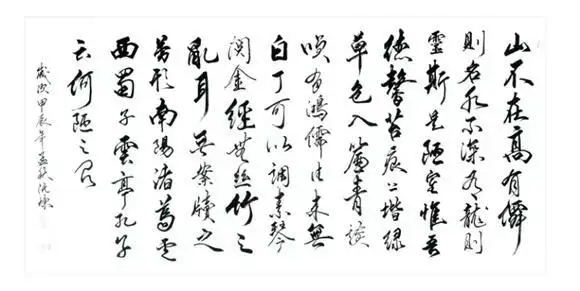 山不在高有僊
則名水不深有龍則
靈斯是陋室惟吾
德馨苔痕上堦緑
草色入簾青談
咲有鴻儒往来無
白丁可以調素琴
閲金經無絲竹之
亂耳無案牘之
勞形南陽諸葛廬
西蜀子雲亭孔子
云何陋之有
歲次甲辰年孟秋